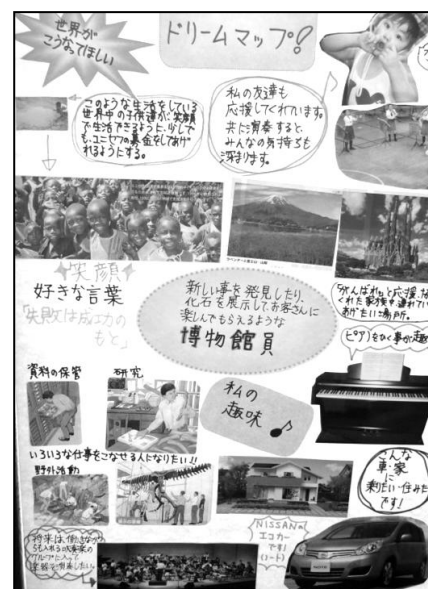 世界が
こうなってほしい
ドリームマップ!
このような生活をしている
世界中の子供達が、笑顔
で生活できるように、少しで
も、ユニセフの募金をしてあげ
れるようにする。
私の友達も
応援してくれています。
共に演奏すると、
みんなの気持ちも
深まります。
笑顔
好きな言葉
「失敗は成功の
もと」
新しい事を発見したり、
化石を展示して、お客さんに
楽しんでもらえるような
博物館員
「がんばれ」と応援
くれた家族を連れてい
あげたい場所。
ピアノをひく事が趣
資料の保管
研究
私の
趣味
いろいろな仕事をこなせる人になりたい!!
野外活動
こんな
車・家
に
乗りたい・住みた
です!
NISSANの
エコカー
です!
(ノート)
将来は、働きながら
NOTE